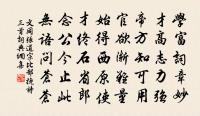 學富詞章妙
才高志力強
帝方知可用
官欲漸量
始得西
才終石省郎
念公今止此
無語問蒼蒼
文同張道宗比部挽詩
三首詞典網書